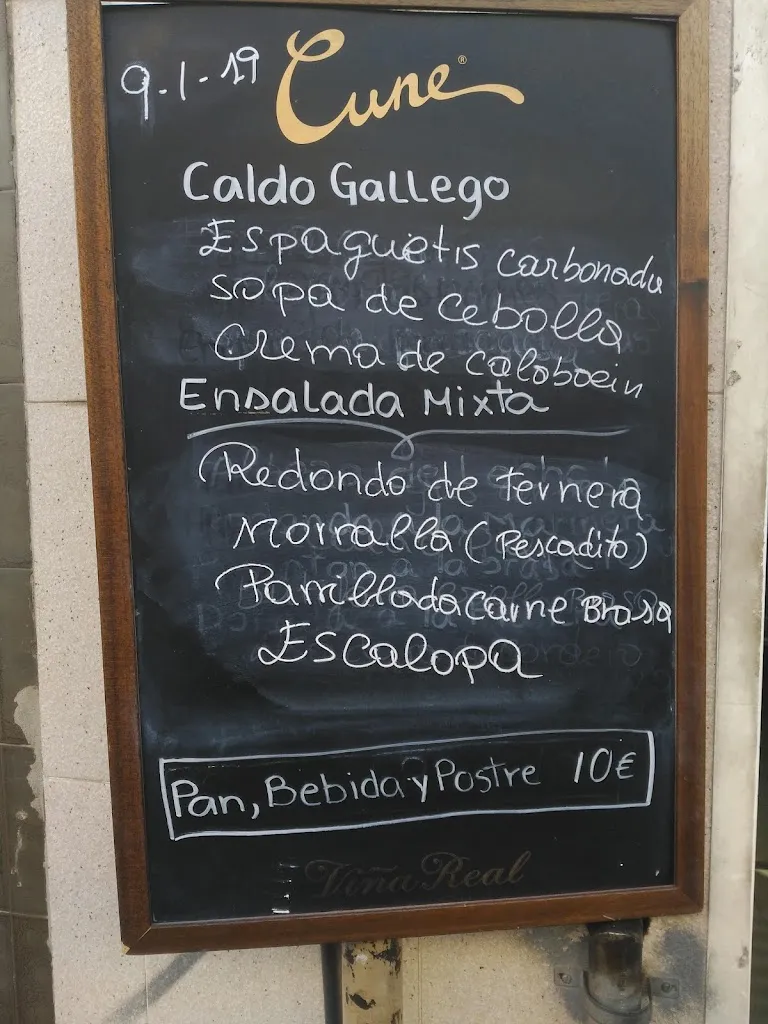 9-1-19
Cune®
Caldo Gallego
Espaguetis carbonada
sopa de cebolla
Crema de calabacin
Ensalada Mixta
Redondo de ternera
Morralla (Pescadito)
Parrillada Carne Brasa
Escalopa
Pan, Bebida y Postre 10€
Viña Real